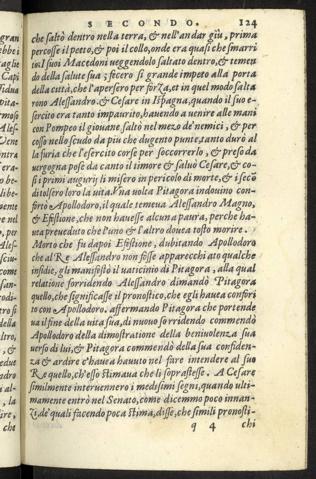 SECONDO. 124
che saltò dentro nella terra, & nell'andar giù, prima
percosse il petto, & poi il collo, onde era quasi che smarri
to. I suoi Macedoni veggendolo saltato dentro, & temen
do della salute sua; fecero si grande impeto alla porta
della città, che l'apersero per forza, et in quel modo salta
rono Alessandro & Cesare in Ispagna, quando il suo e-
sercito era tanto impaurito, havendo a venire alle mani
con Pompeo il giovane saltò nel mezo de' nemici, & per
cosso nello scudo da piu che dugento punte, tanto durò al
la furia che l'esercito corse per soccorrerlo, & preso da
vergogna pose da canto il timore & salvò Cesare, & co-
si i primi augurij li misero in pericolo di morte, & i secō
di tolsero loro la vita. Vna volta Pitagora indovino con-
fortò Apollodoro, il quale temeva Alessandro Magno,
& Efistione, che non havesse alcuna paura, perche ha-
vea preveduto che l'uno & l'altro dovea tosto morire.
Morto che fu dapoi Efistione, dubitando Apollodoro
che al Re Alessandro non fosse apparecchiato qualche
insidie, gli manifestò il vaticinio di Pitagora, alla qual
relatione sorridendo Alessandro dimandò Pitagora
quello, che significasse il pronostico, che egli havea conferi
to con Apollodoro. affermando Pitagora che portende
va il fine della vita sua, di nuovo sorridendo commendò
Apollodoro della dimostratione della benivolenza sua
verso di lui, & Pitagora commendò della sua confiden-
za & ardire c'havea havuto nel fare intendere al suo
Re quello, ch'esso stimava che li soprastesse. A Cesare
similmente intervennero i medesimi segni, quando ulti-
mamente entrò nel Senato, come dicemmo poco innan-
zi, de' quali facendo poca stima, disse, che simili pronosti-
q 4 chi